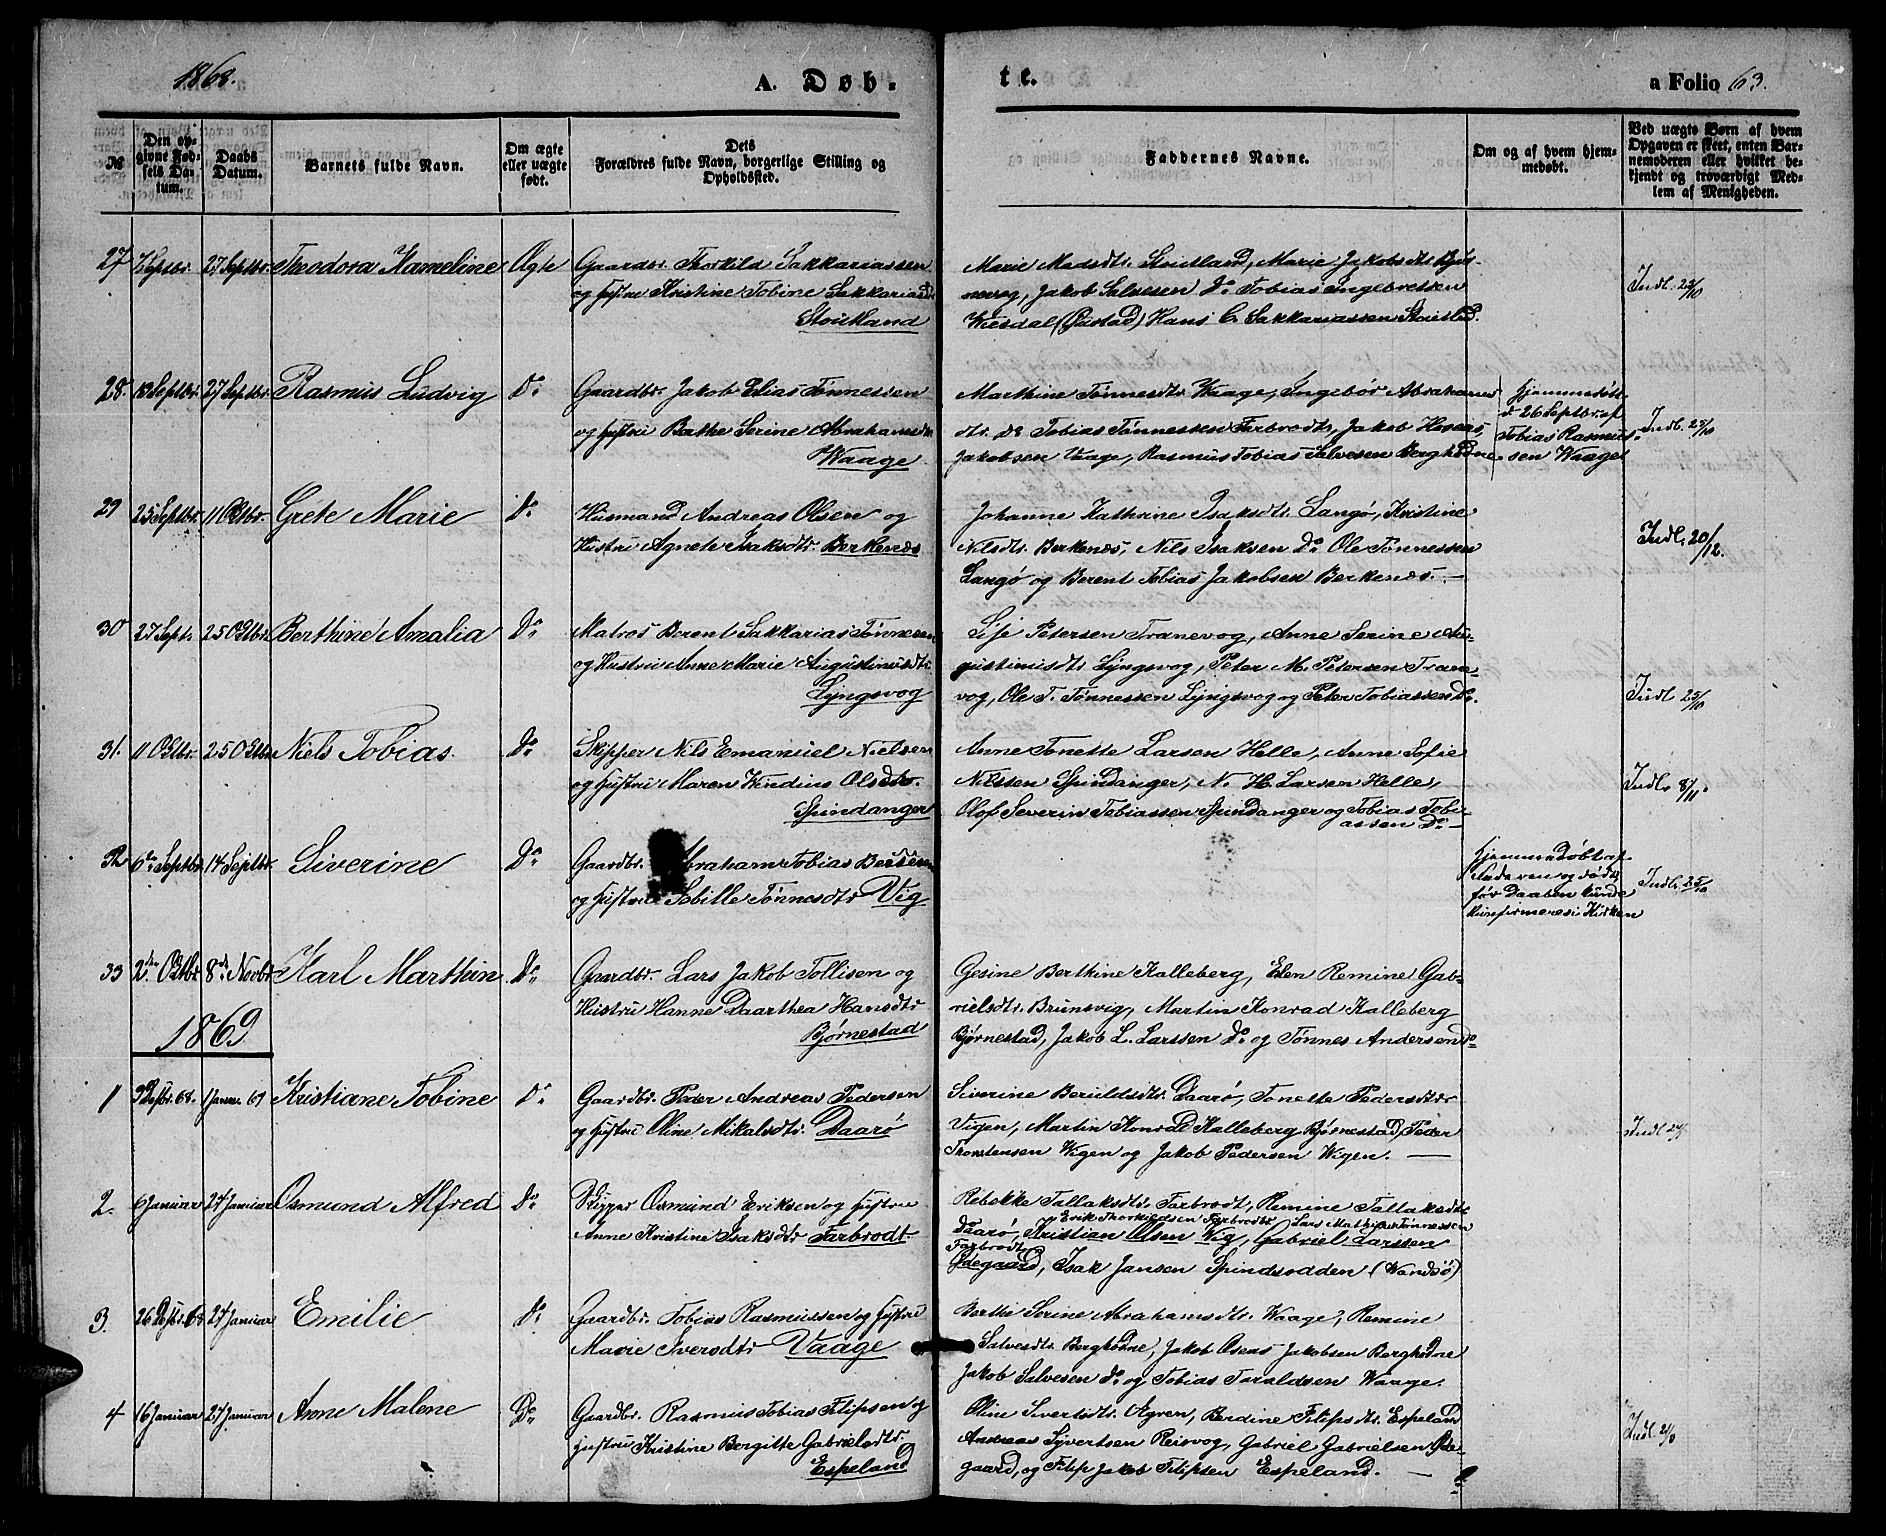 1868.
A. Døb-
te.
a Folio 63.
№
Den opgivne Fødsels Datum.
Daabs Datum.
Barnets fulde Navn.
Om ægte eller uægte født.
Dets Forældres fulde Navn, borgerlige Stilling og Opholdssted.
Faddernes Navne.
Om og af hvem hjemmedøbt.
Ved uægte Børn af hvem Opgaven er skeet, enten Barnemoderen eller hvilket bekjendt og troværdigt Medlem af Menigheden.
27 Septbr. 27 Septbr. Theodora Kameline Ægte Gaardbr. Thorkild Sakkariassen
og Hustru Kristine Tobine Sakkariasdtr
Stoutland
Marie Madsdtr. Stoutland, Marie Jakobsdtr
Jakob Salvesen Do Tobias Ingebretsen
Hans C. Sakkariassen
Indl. 25/10
28. 12 Septbr. 27 Septbr. Rasmus Ludvig Do Gaardbr. Jakob Elias Tønnessen
og Hustru Bathe Serine Abrahamsdtr
Waage
Marthine Tønnesdtr. Waage, Ingebor Abrahams
dtr. Do Tobias Tønnessen Farbrodt, Jakob Hoseas
Jakobsen Vaage, Rasmus Tobias Salvesen Berghodne
Hjemmedøbt
d 26 Septbr. af
Tobias Rasmus-
sen Waage
Indl. 25/10
29 25 Septbr. 11 Oktbr. Grete Marie Do Husmand Andreas Olsen og
Hustru Agnete Isaksdtr. Berkenes
Johanne Kathrine Isaksdtr. Langø, Kristine
Nilsdtr. Berkenes, Nils Isaksen Do Ole Tønnessen
Langø og Berent Tobias Jakobsen Berkenes.
Indl. 20/12.
30 27 Sept. 25 Oktbr Berthine Amalia Do Matros Berent Sakkarias Tønnesen
og Hustru Anne Marie Augustinusdtr.
Lyngsvog
Sise Petersen Tranevog, Anne Serine Au-
gustinusdtr. Lyngsvog, Peter M. Petersen Trane-
vog, Ole T. Tønnessen Lyngsvog og Peter Tobiassen Do
Indl. 25/10
31. 11 Oktbr. 25 Oktbr Niels Tobias. Do Skipper Nils Emanuel Nielsen
og Hustru Maren Vendine Olsdtr.
Spindanger
Anne Tonette Larsen Helle, Anne Sofie
Nilssen Spindanger, N. H. Larsen Helle,
Olof Severin Tobiassen Spindanger og Tobias Tobi-
assen Do
Indl. 8/11.
32 6te Septbr 14 Septbr. Siverine Do Gaardbr. Abraham Tobias Bertesen
og Hustru Sobille Tønnesdtr Vig
Hjemmedøbt af
Faderen og døde
før Daaben kunde
konfirmeres i Kirken
Indl. 25/10
33 2den Oktbr 8de Novbr. Karl Marthin Do Gaardbr. Lars Jakob Tollisen og
Hustru Hanne Daarthea Hansdtr
Bjørnestad
Gesine Berthine Kalleberg, Elen Remine Gab-
rielsdtr. Brunsvig, Martin Konrad Kalleberg
Bjørnestad, Jakob L. Larssen Do og Tønnes Andersen Do
1869
1 Desbr. 68. 1 Januar 69 Kristiane Tobine Do Gaardbr. Peder Andreas Pedersen
og Hustru Oline Mikalsdtr. Daarø
Siverine Beruldsdtr. Daarø, Tonette Pedersdtr
Vigen, Martin Konrad Kalleberg Bjørnestad, Peder
Thorstensen Wigen og Jakob Pedersen Wigen.
Indl
2. 6 Januar 24 Januar Osmund Alfred Do Rigger Osmund Eriksen og Hustru
Anne Kristine Isaksdtr Farbrodt
Rebekke Tallaksdtr. Farbrodt, Remine Tallaksdtr
Erik Thorkildsen Farbrodt Lars Mathias Tønnessen
Daarø, Kristian Olsen Vig, Gabriel Larssen
Farbrodt
Ødegaard, Isak Jansen Spindsodden (Wandsø)
3. 26 Desbr. 68 24 Januar Emilie Do Gaardbr. Tobias Rasmussen og Hustru
Marie Sversdtr Vaage
Berthe Serine Abrahamsdtr. Waage, Remine
Salvesdtr. Berghodne, Jakob Oseas Jakobsen Berghodne
Jakob Salvesen Do og Tobias Taraldsen Waage.
4 16 Januar 24 Januar Anne Malene Do Gaardbr. Rasmus Tobias Filipsen og
Hustru Kristine Bergitte Gabrielsdtr.
Espeland
Oline Sivertsdtr. Agren, Berdine Filipsdtr. Espeland
Andreas Syvertsen Reisvog, Gabriel Gabrielsen Øde-
gaard, og Filip Jakob Filipsen Espeland.
Indl